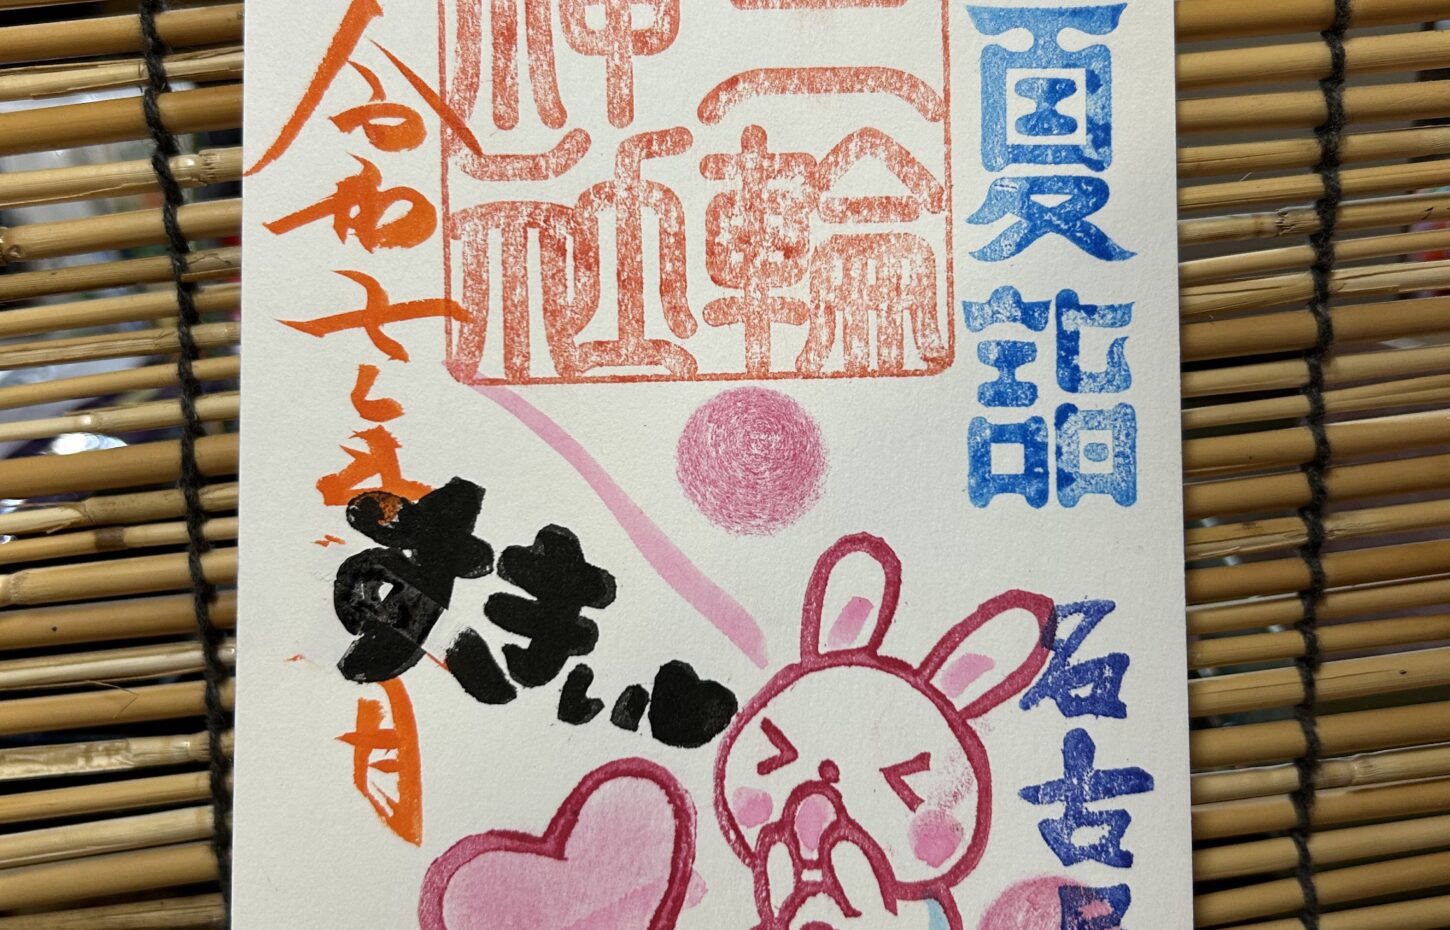 夏詣
三輪
神社
名古
令和七年
月